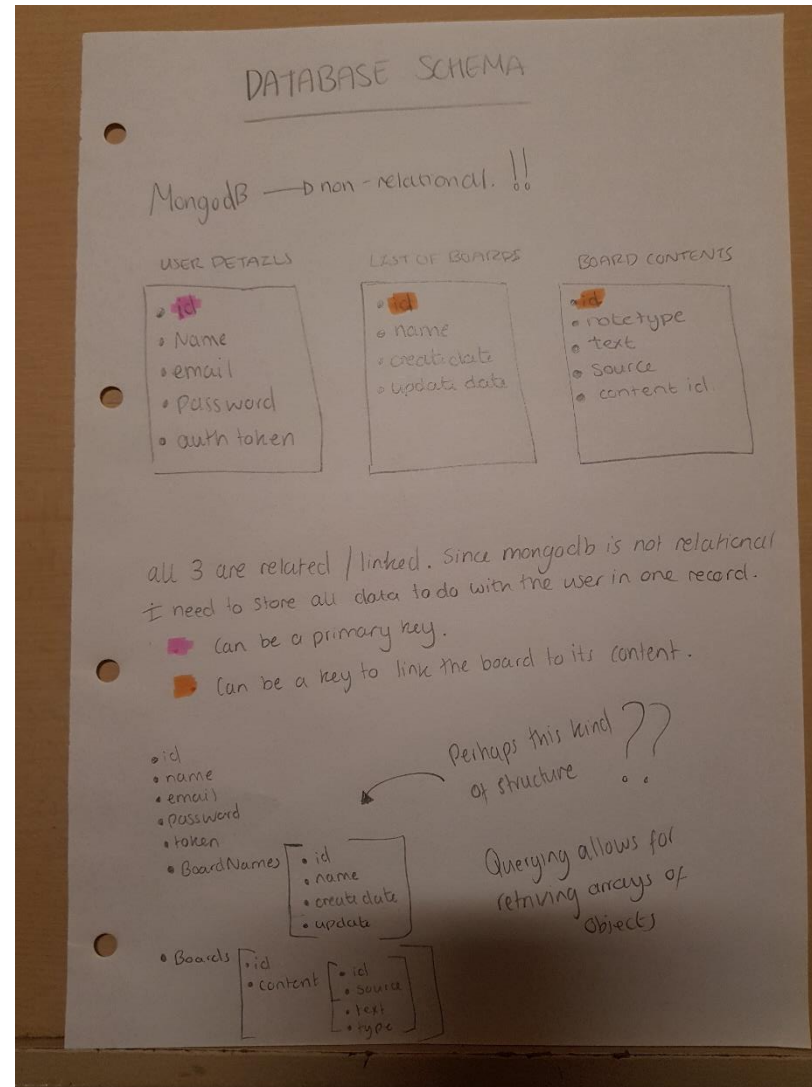 DATABASE SCHEMA
MongodB → non-relational. !!
USER DETAILS
• id
• Name
• email
• password
• auth token
LIST OF BOARDS
• id
• name
• create date
• update date
BOARD CONTENTS
• id
• notetype
• text
• source
• content id
all 3 are related / linked. Since mongodb is not relational
I need to store all data to do with the user in one record.
Can be a primary key.
Can be a key to link the board to its content.
• id
• name
• email
• password
• token
• BoardNames
• id
• name
• create date
• update
• Boards
• id
• content
• id
• source
• text
• type
Perhaps this kind
of structure ??
Querying allows for
retriving arrays of
Objects